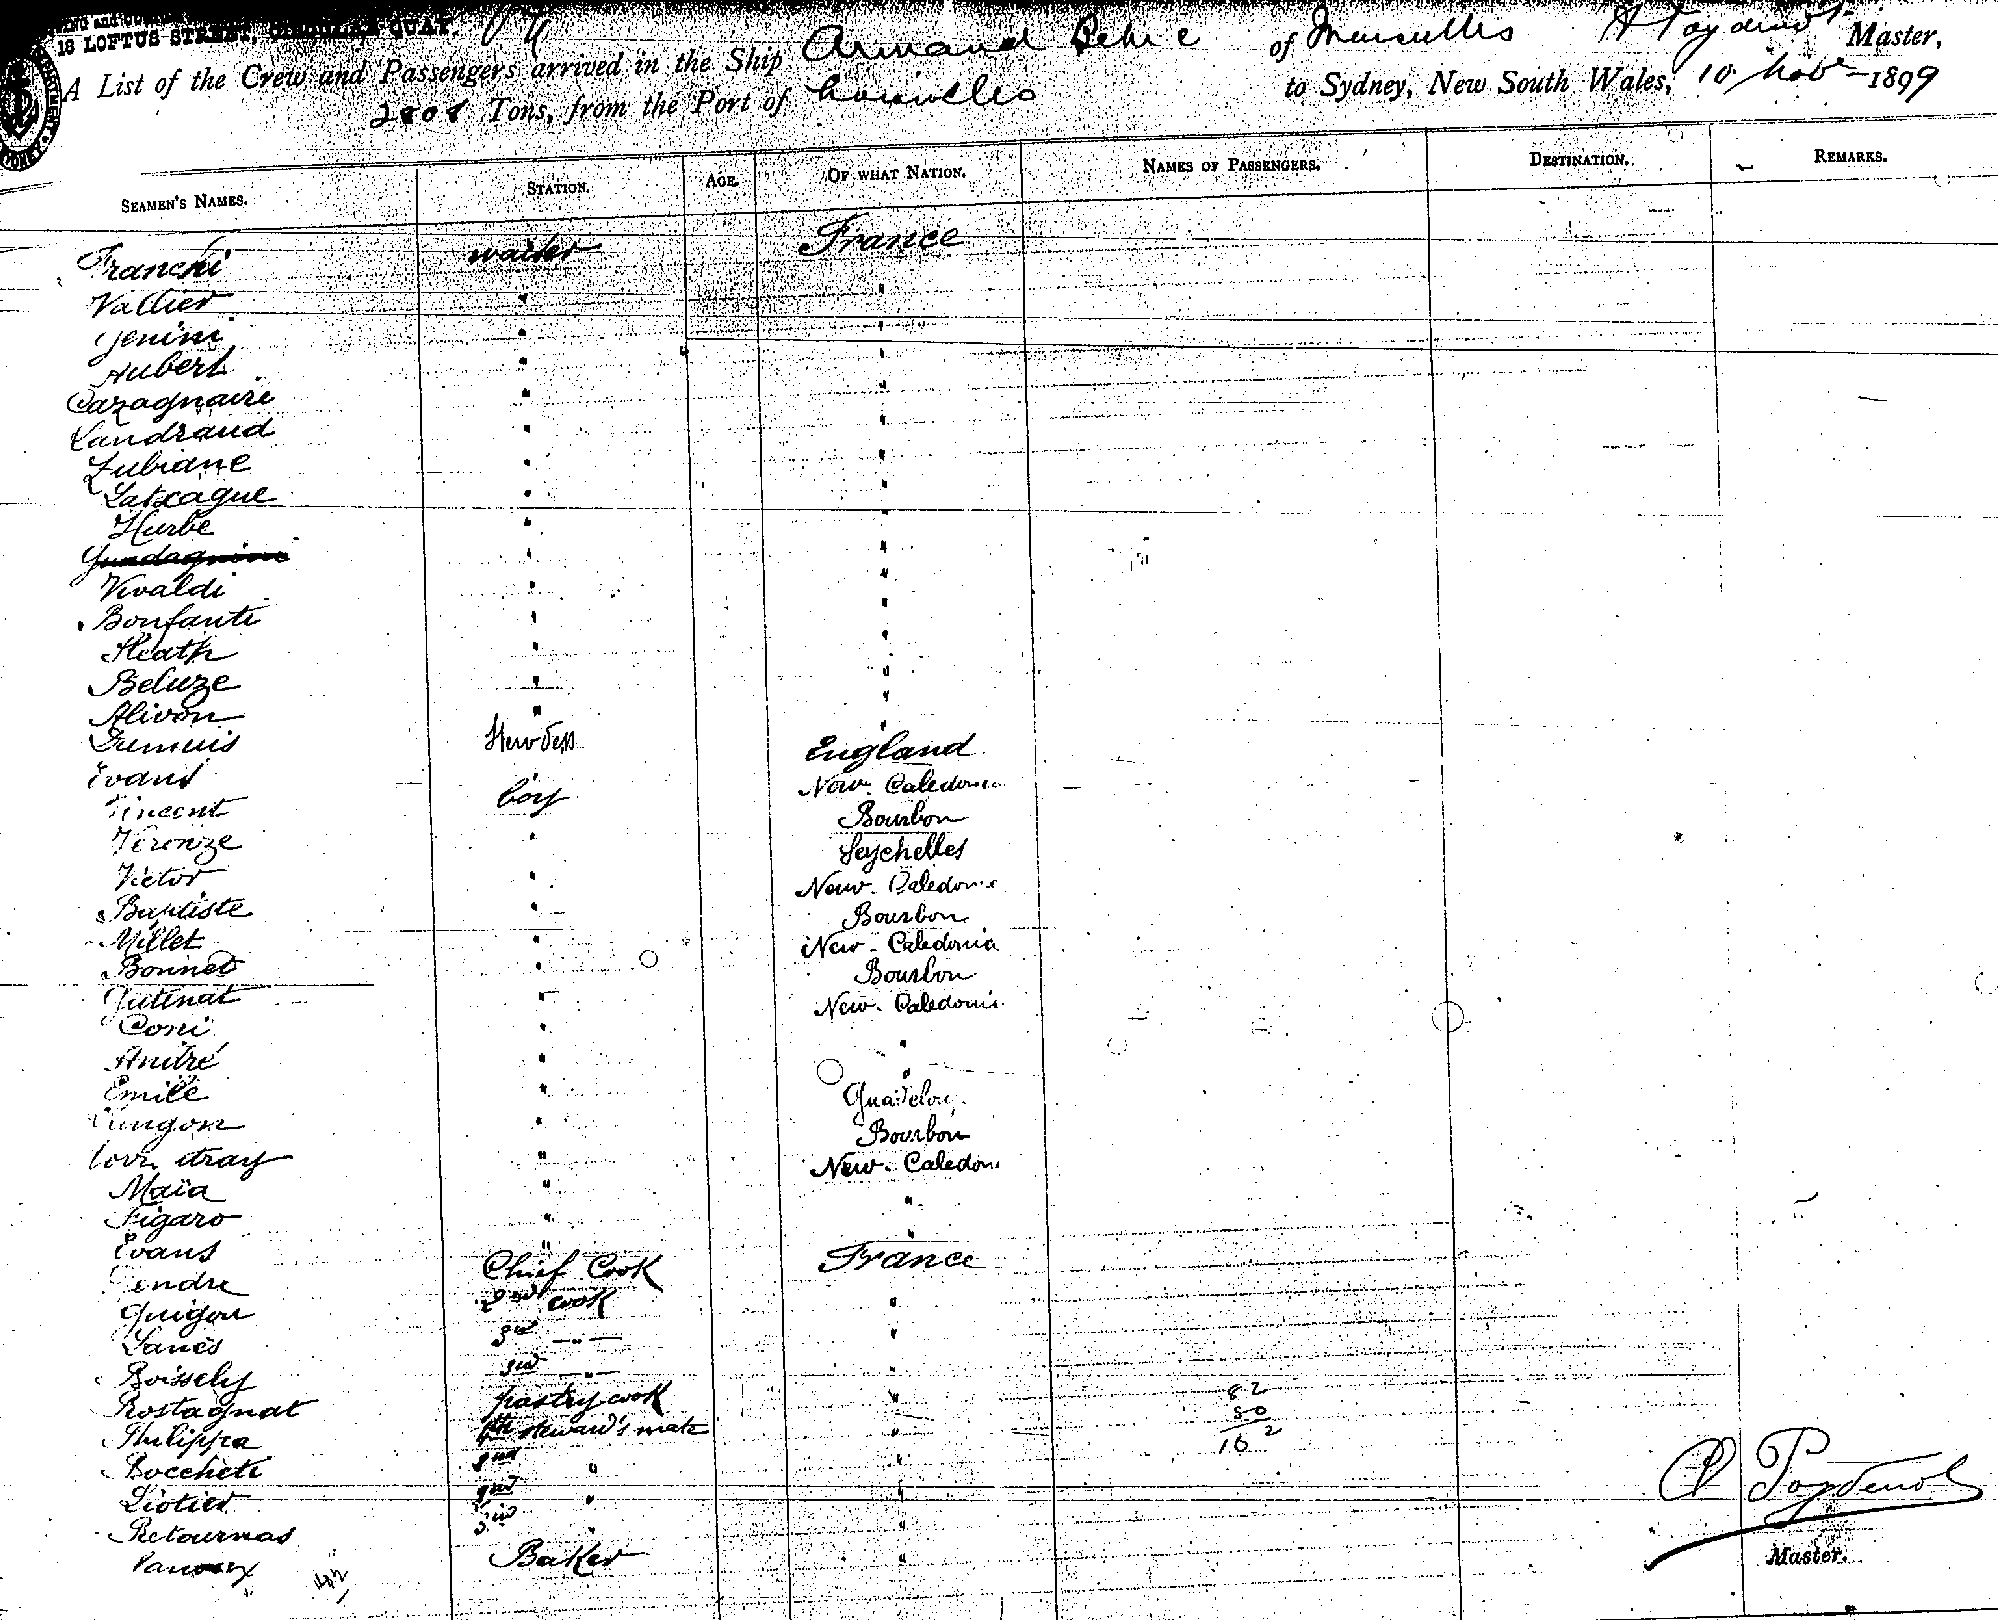 18 LOFTUS STREET, CIRCULAR QUAY.
A List of the Crew and Passengers arrived in the Ship Armand Behic of Marseilles Master,
2808 Tons, from the Port of Marseilles to Sydney, New South Wales, 10 Nobr 1899
SEAMEN'S NAMES. STATION. AGE. OF WHAT NATION. NAMES OF PASSENGERS. DESTINATION. REMARKS.
Franchi waiter France
Vallier " "
Genini " "
Aubert " "
Cazagnaire " "
Landraud " "
Lubiane " "
Latxague " "
Hurbe " "
Guadagnini " "
Vivaldi " "
Bonfanti " "
Heath " "
Beluze " "
Alivon " "
Dumuis Stewdess England
Evans New Caledonia
Vincent boy Bourbon
Veronze " Seychelles
Victor " New-Caledonia
Baptiste " Bourbon
Millet " New-Caledonia
Bonnet " Bourbon
Gutinat " New-Caledonia
Coni " "
André " "
Emile "
" Bourbon
" New-Caledon
Maïa " "
Figaro " "
Evans " France
Chief Cook
Guigou 2nd cook "
Lanes 3rd — " — "
Boissely 3rd " "
Rostagnat pastry cook " 82
Philippa steward's mate " 80
Boccheti 2nd " " 162
Liotier 2nd " "
Retournas 3rd " "
Baker "
A Poydenot
Master.